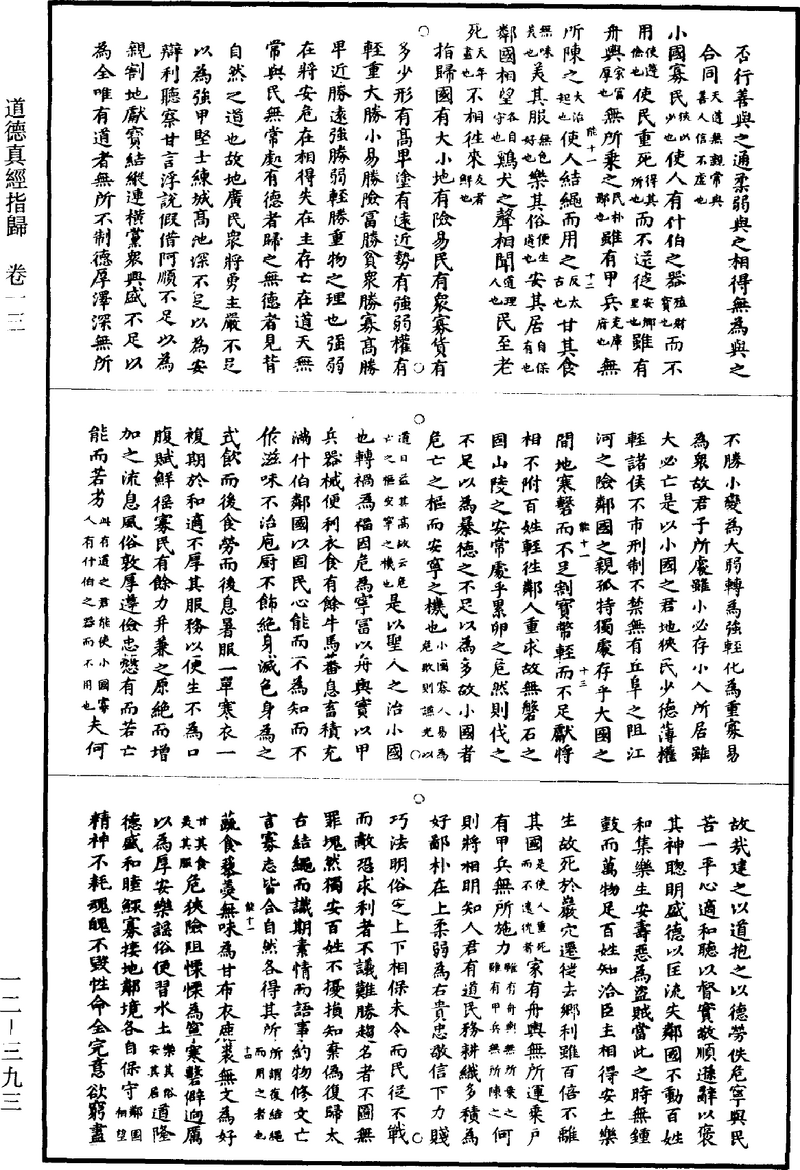 否行善與之通柔弱與之相得無為與之
合同天道無親常與善人信不虛也
小國寡民狹以少也使人有什伯之器殖財寶也而不
用使遵儉也使民重死得其所也而不遠徙安鄉里也雖有
舟輿家富厚也無所乘之民朴鄙也雖有甲兵充庫府也無
所陳之大治起也使人結繩而用之反太古也甘其食
無味美也美其服無色好也樂其俗便生道也安其居自保有也
鄰國相望各自守也雞犬之聲相聞道理人也民至老
死天年盡也不相往來友者鮮也
指歸國有大小地有險易民有眾寡貨有
多少形有高卑塗有遠近勢有強弱權有
輕重大勝小易勝險富勝貧眾勝寡高勝
卑近勝遠強勝弱輕勝重物之理也強弱
在將安危在相得失在主存亡在道天無
常與民無常處有德者歸之無德者見背
自然之道也故地廣民眾將勇主嚴不足
以為強甲堅士練城高池深不足以為安
辯利聽察甘言浮說假借阿順不足以為
親割地獻寶結縱連橫黨眾興盛不足以
為全唯有道者無所不制德厚澤深無所
能十一
十二
不勝小變為大弱轉為強輕化為重寡易
為眾故君子所處雖小必存小人所居雖
大必亡是以小國之君地狹民少德薄權
輕諸侯不市刑制不禁無有丘阜之阻江
河之險鄰國之親孤特獨處存乎大國之
間地寒磬而不足割寶幣輕而不足獻將
相不附百姓輕徙鄰人重求故無磐石之
固山陵之安常處乎累卵之危然則伐之
不足以為暴德之不足以為多故小國者
危亡之樞而安寧之機也小國寡人易為危歟則謙光以
道日益其高故云危亡之樞安寧之機也是以聖人之治小國
也轉禍為福因危為寧富以舟輿實以甲
兵器械便利衣食有餘牛馬蕃息畜積充
滿什伯鄰國以固民心能而不為知而不
作滋味不治庖廚不飾絕身滅色身為之
式飢而後食勞而後息暑服一單寒衣一
複期於和適不厚其服務以便生不為口
腹賦鮮徭寡民有餘力并兼之原絕而增
加之流息風俗敦厚遵儉忠愨有而若亡
能而若劣此有道之君能使小國寡人有什伯之器而不用也夫何
能十一
十三
故哉建之以道抱之以德勞佚危寧與民
苦一平心適和聽以督實敬順遜辭以褒
其神聰明盛德以匡流失鄰國不動百姓
和集樂生安壽惡為盜賊當此之時無鍾
鼓而萬物足百姓知洽臣主相得安土樂
生故死於巖穴還徙去鄉利雖百倍不離
其國是使人重死而不遠徙者家有舟輿無所運乘戶
有甲兵無所施力雖有舟輿無所乘之雖有甲兵無所陳之何
則將相明知人君有道民務耕織多積為
好鄙朴在上柔弱為右貴忠敬信下力賤
巧法明俗定上下相保未令而民從不戰
而敵恐求利者不議難勝趨名者不圖無
罪塊然獨安百姓不擾損知棄偽復歸太
古結繩而識期素情而語事約物修文亡
言寡志皆合自然各得其所所謂復結繩而用之者也
蔬食藜羹無味為甘布衣鹿裘無文為好
甘其食美其服危狹險阻慄慄為寧寒磬僻迥厲
以為厚安樂謠俗便習水土樂其俗安其居道隆
德盛和睦鰥寡接地鄰境各自保守鄰國相望
精神不耗魂魄不毀性命全完意欲窮盡
能十一
十四
道德真經指歸 卷一三
一二－三九三